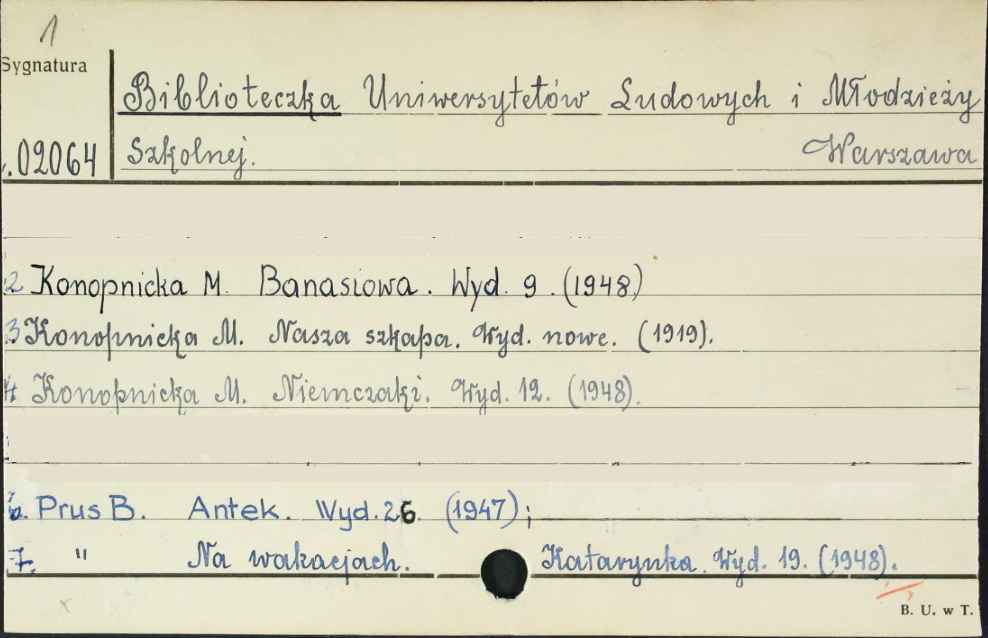 1
Sygnatura
Biblioteczka Uniwersytetów Ludowych i Młodzieży
.02064 Szkolnej. Warszawa
2 Konopnicka M. Banasiowa. Wyd. 9. (1948)
3 Konopnicka M. Nasza szkapa. Wyd. nowe. (1919).
4 Konopnicka M. Niemczaki. Wyd. 12. (1948).
6. Prus B. Antek. Wyd. 26 (1947);
7. " Na wakacjach. Katarynka. Wyd. 19. (1948).
B. U. w T.